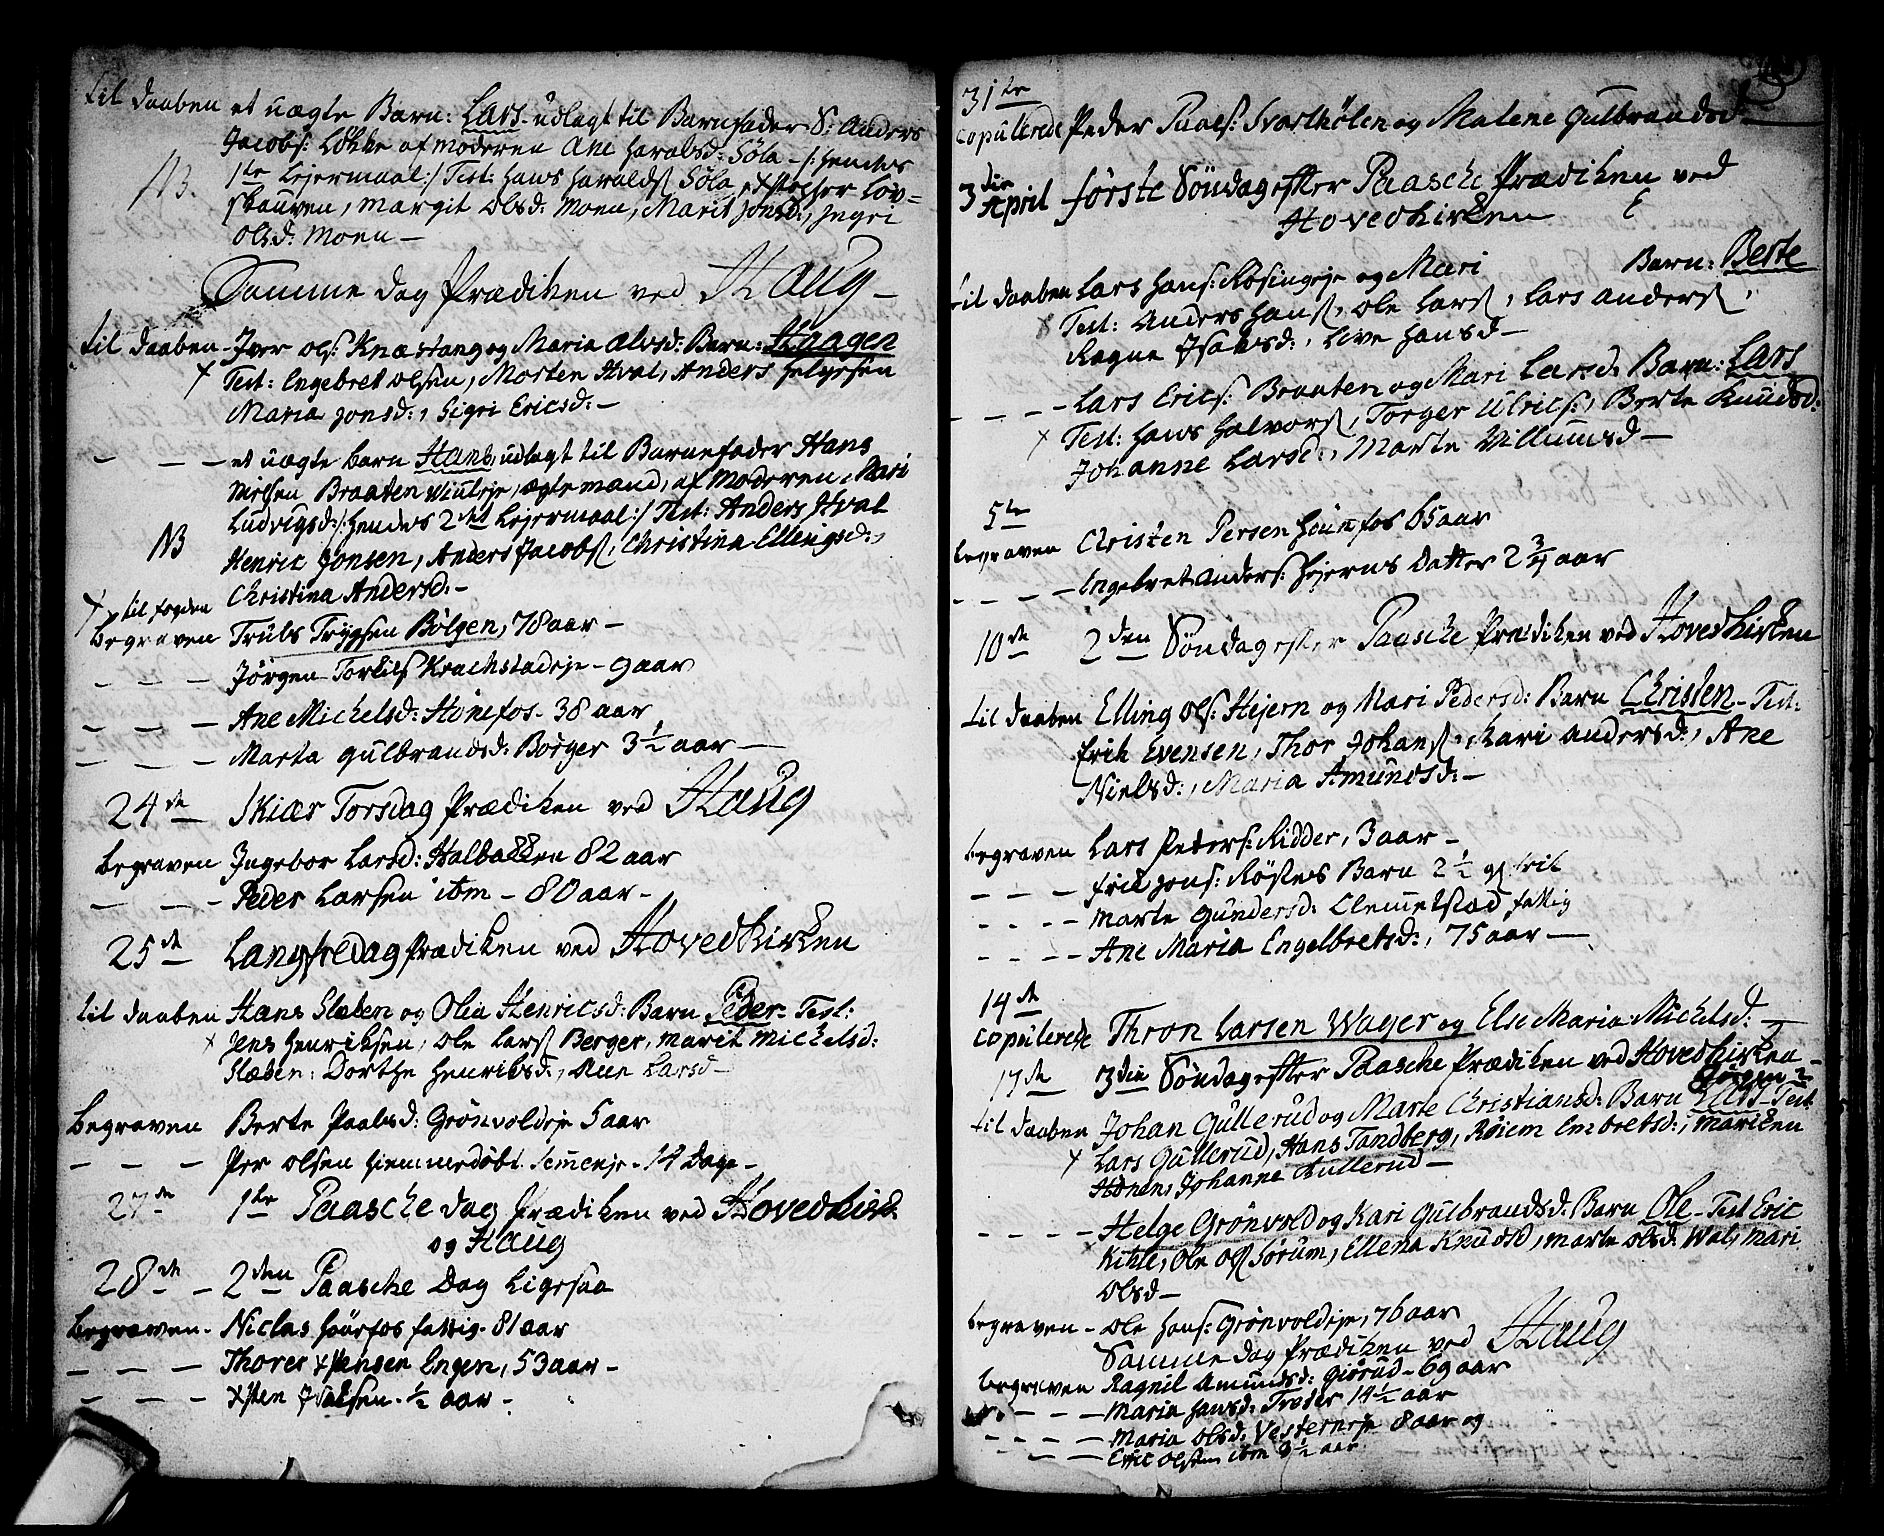 til Daaben et uægte Barn: Lars udlagt til Barnefader S: Anders
Jacobs: Løkke af moderen Ane Haralsd: Søla - /: hendes
NB. 1te Lejermaal:/ Test: Hans Haralds Søla,
skouren, Margit Olsd: Moen, Marit Jonsd:, Ingri
Olsd: Moen -
Samme Dag Prædiken ved Haug -
til Daaben - Iver Ols: Knæstang og Maria Alvsd: Barn: Haagen
x Test: Engebret Olsen, Morten Hval, Anders Helgesen
Maria Jonsd:, Sigri Ericsd: -
- - - et uægte barn Hans, udlagt til Barnefader Hans
Nielsen Braaten, ægtemand, af Moderen Mari
Ludvigsd: /: hendes 2det Lejermaal:/ Test: Anders Hval
NB Henric Jonsen, Anders Jacobs:, Christina Ellingsd:,
Christina Andersd: -
x til fogden
begraven Truls Trygsen Bølgen, 78 aar -
- - - Jørgen Torkils Krachstadeje - 9 aar
- - - Ane Michelsd: Hønefos - 38 aar
- - - Marta Gulbrandsd: Borger 3 ½ aar -
24de Skiær Torsdag Prædiken ved Haug
begraven Ingebor Larsd: Halbakken 82 aar
- - - Peder Larsen ibm - 80 aar -
25de Langfredag Prædiken ved Hovedkirken
til Daaben Hans Slæben og Olia Henricsd: Barn Peder - Test:
x Jens Henriksen, Ole Lars: Berger, Marit Michelsd:
Slæben: Dorthe Henriksd:, Ane Larsd -
Begraven Berte Paalsd: Grønvoldeje 5 aar
- - - Per Olsen hiemmedøbt - 14 Dage -
27de 1te Paasche Dag Prædiken ved Hovedkirk:
og Haug
28de - 2den Paasche Dag Ligesaa
Begraven - Niclas Houfos fattig - 81 aar
- - - Thorer Hansen Engen, 53 aar -
- - - Xsten - ½ aar -
31te
Copulerede Peder Paals: Svarthølen og Malene Gulbrandsd:
3die April første Søndag efter Paasche Prædiken ved
Hovedkirken
til Daaben Lars Hans: Røsingeje og Mari Barn: Berte
x Test: Anders Hans:, Ole Lars:, Lars Anders:,
Ragne Isaksd:, Live Hansd -
- - - - Lars Erics: Braaten og Mari Larsd: Barn: Lars
x Test: Hans Halvors:, Torger Ulrics:, Berte Knudsd:
Johanne Larsd:, Marte Villumsd -
5te
begraven Christen Persen Houfos 65 aar
- - - - Engebret Anders: Hjerns Datter 2 ¾ aar
10de 2den Søndag efter Paasche Prædiken ved Hovedkirken
til Daaben Elling Ols: Hejern og Mari Pedersd: Barn Christen - Test:
Erik Evensen, Thor Johans:, Kari Andersd:, Ane
Nielsd:, Maria Amundsd: -
begraven Lars Peders: Ridder, 3 aar -
- - - Erik Jons: Røstes Barn 2 ½
- - - - Marte Gundersd: Clemmetstad fattig
- - - - Ane Maria Engelbretsd:, 75 aar -
14de
Copulerede Thron Larsen Wager og Else Maria Michelsd: -
17de 3die Søndag efter Paasche Prædiken ved Hovedkirken -
til Daaben Johan Gullerud og Marte Christiansd: Barn Lars - Test
x Lars Gullerud, Hans Tandberg, Embretsd:, Mariken
Hønen, Johanne Gullerud -
- - - - Helge Grønvold og Kari Gulbrandsd: Barn Ole - Test Eric
Kihle, Ole Ols: Sørum, Ellena Knudsd, Marte Olsd: Wal, Mari
Olsd -
begraven - Ole Hans: Grønvoldeje, 76 aar
Samme Dag Prædiken ved Haug
begraven Ragnil Amundsd: Giørud - 69 aar
- - - Maria Hansd: 14 ½ aar
- - - - Maria Olsd: Vesterneje 8 aar og
- - - - Eric Olsen ibm